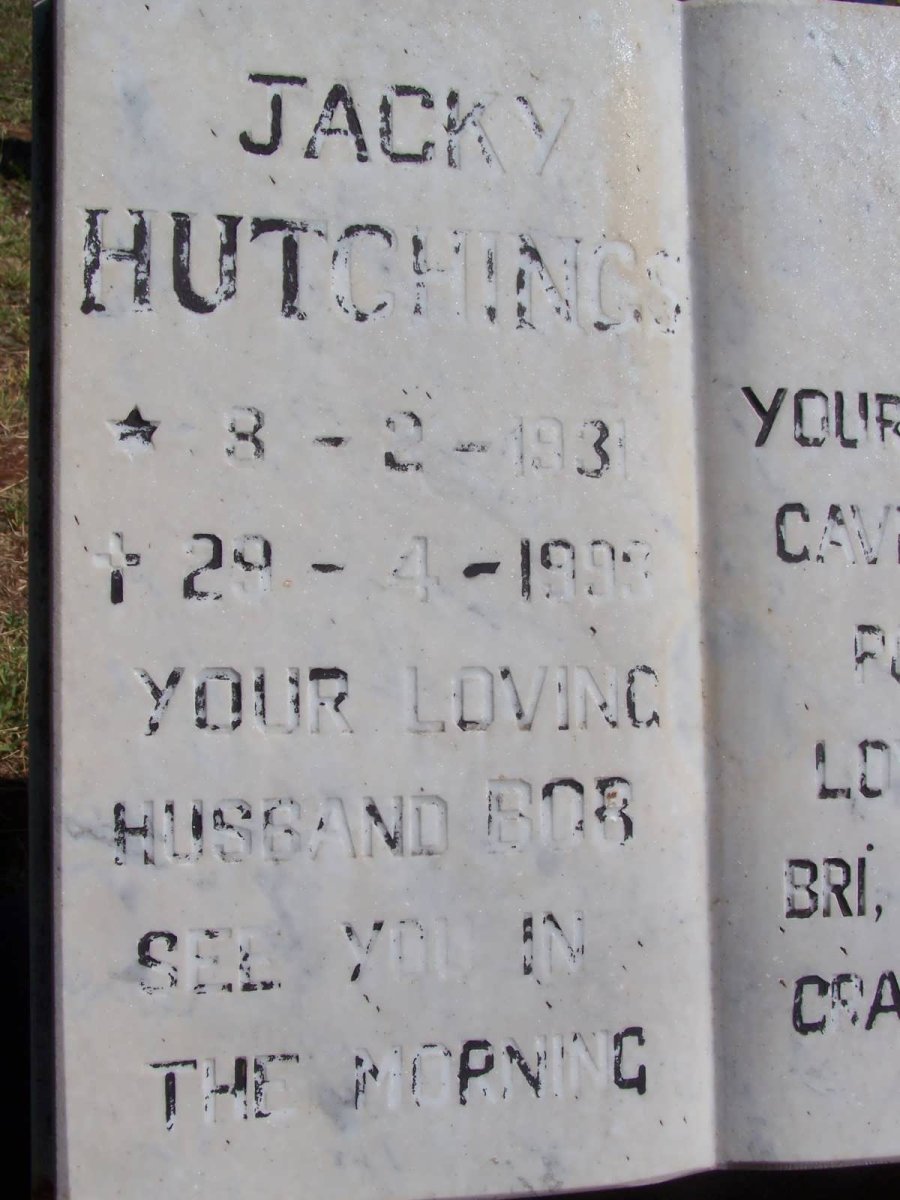 JACKY
HUTCHINGS
★ 8 - 2 - 1931
✝ 29 - 4 - 1993
YOUR LOVING
HUSBAND BOB
SEE YOU IN
THE MORNING
YOUR
BRI,